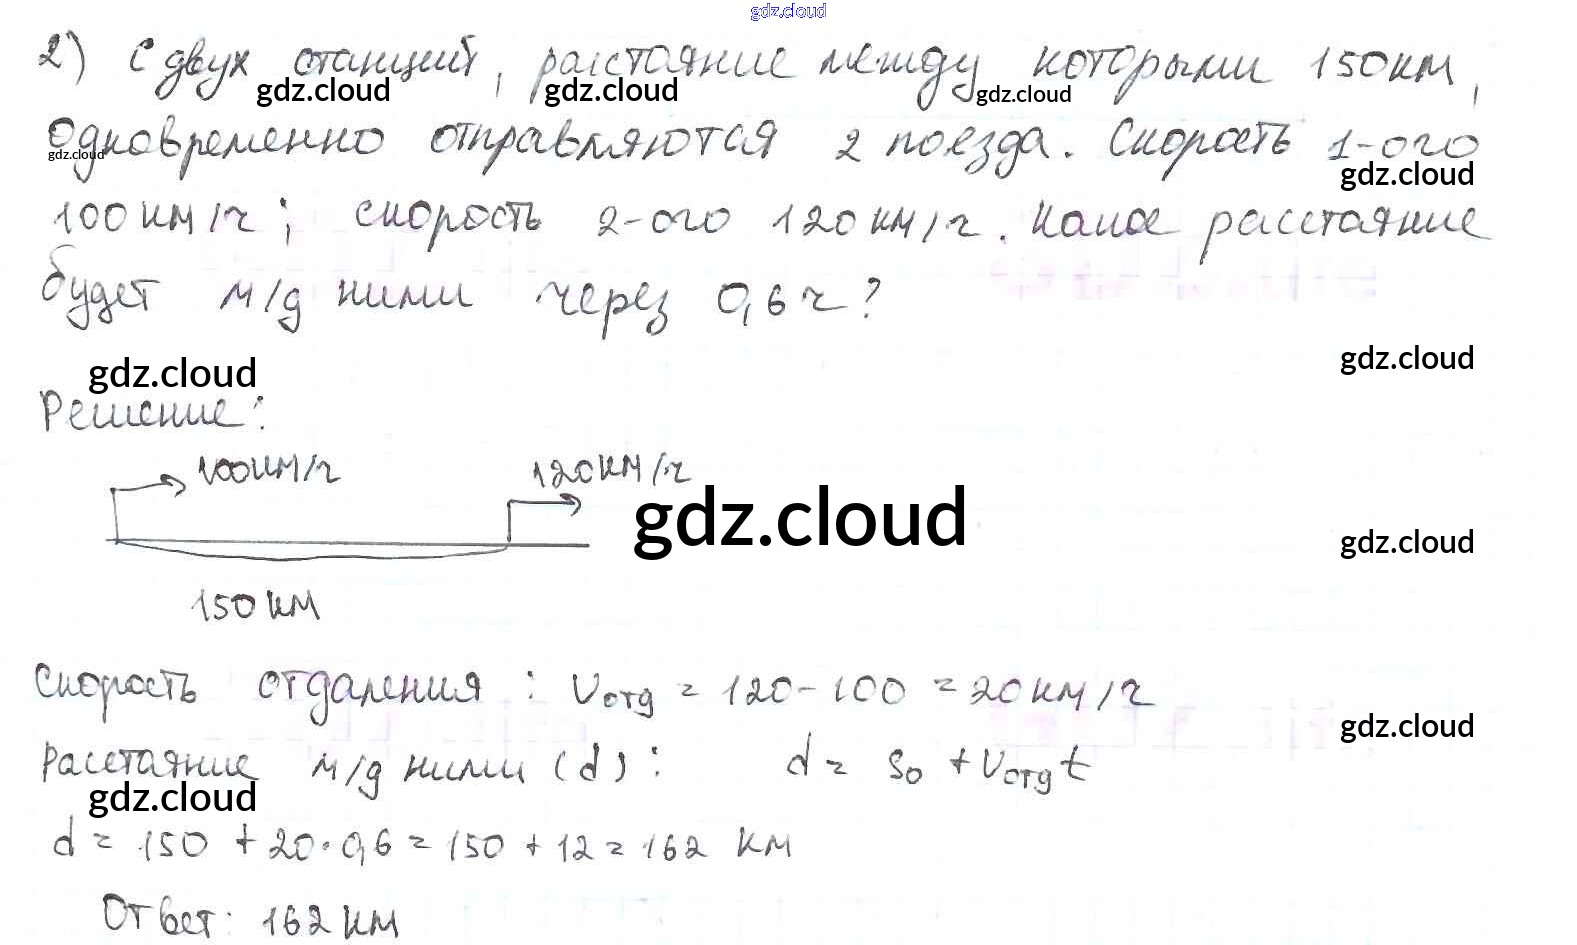 gdz.cloud
2) С двух станций, расстояние между которыми 150 км,
gdz.cloud gdz.cloud gdz.cloud
одновременно отправляются 2 поезда. Скорость 1-ого
gdz.cloud gdz.cloud
100 км/ч; скорость 2-ого 120 км/ч. Какое расстояние
будет м/д ними через 0,6 ч?
gdz.cloud gdz.cloud
Решение:
100 км/ч 120 км/ч
gdz.cloud gdz.cloud
150 км
Скорость отдаления : vотд = 120 - 100 = 20 км/ч
gdz.cloud
Расстояние м/д ними (d) : d = s₀ + vотд t
gdz.cloud
d = 150 + 20·0,6 = 150 + 12 = 162 км
Ответ: 162 км